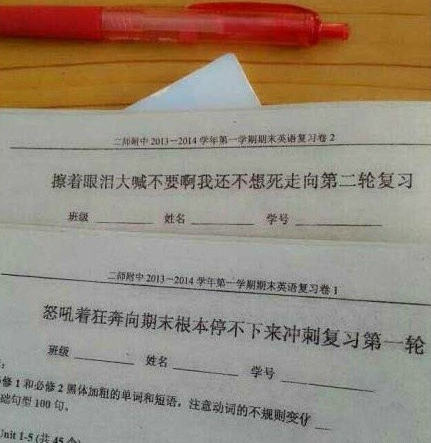 二师附中 2013－2014 学年第一学期期末英语复习卷 2
擦着眼泪大喊不要啊我还不想死走向第二轮复习
班级 姓名 学号
二师附中 2013－2014 学年第一学期期末英语复习卷 1
怒吼着狂奔向期末根本停不下来冲刺复习第一轮
班级 姓名 学号
修 1 和必修 2 黑体加粗的单词和短语，注意动词的不规则变化
础句型 100 句。
Unit 1-5 (共 45 个)